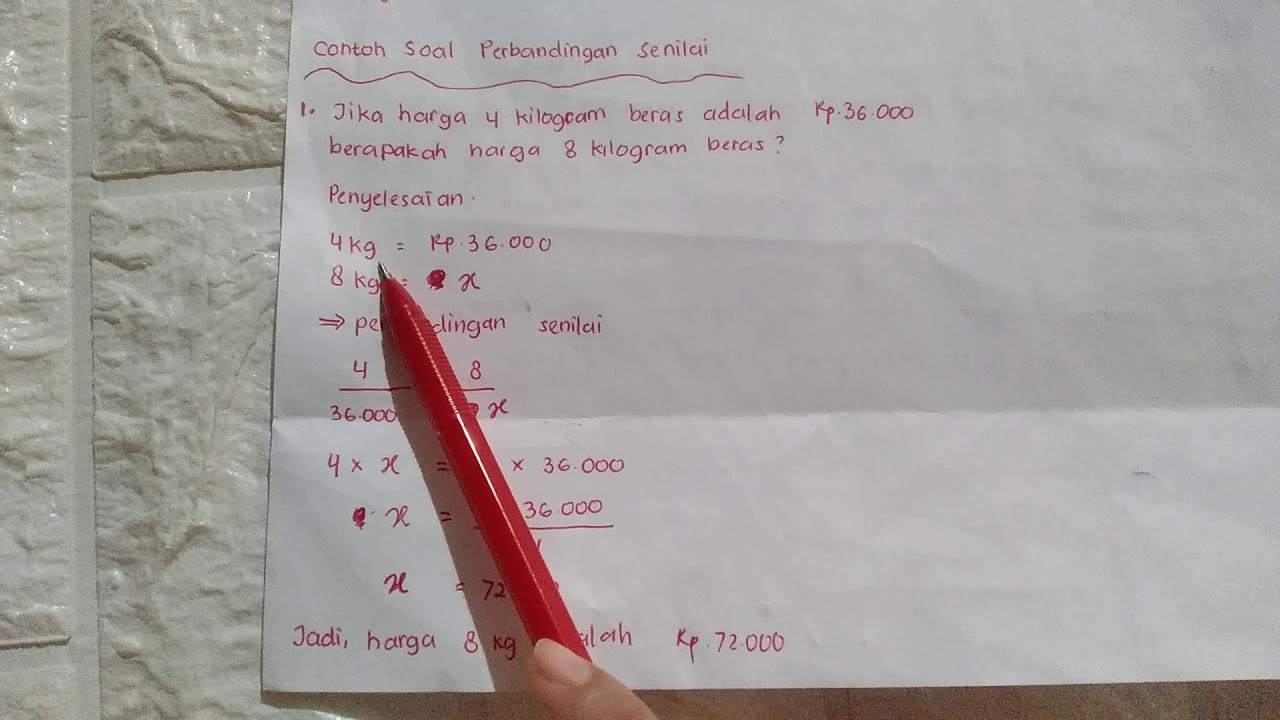 Contoh Soal Perbandingan Senilai
1. Jika harga 4 kilogram beras adalah Rp.36.000
berapakah harga 8 kilogram beras?
Penyelesaian.
4 kg = Rp.36.000
8 kg = x
⇒ senilai
4 8
36.000 x
4 × x = × 36.000
x = 36.000
x = 72
Jadi, harga 8 kg Rp.72.000